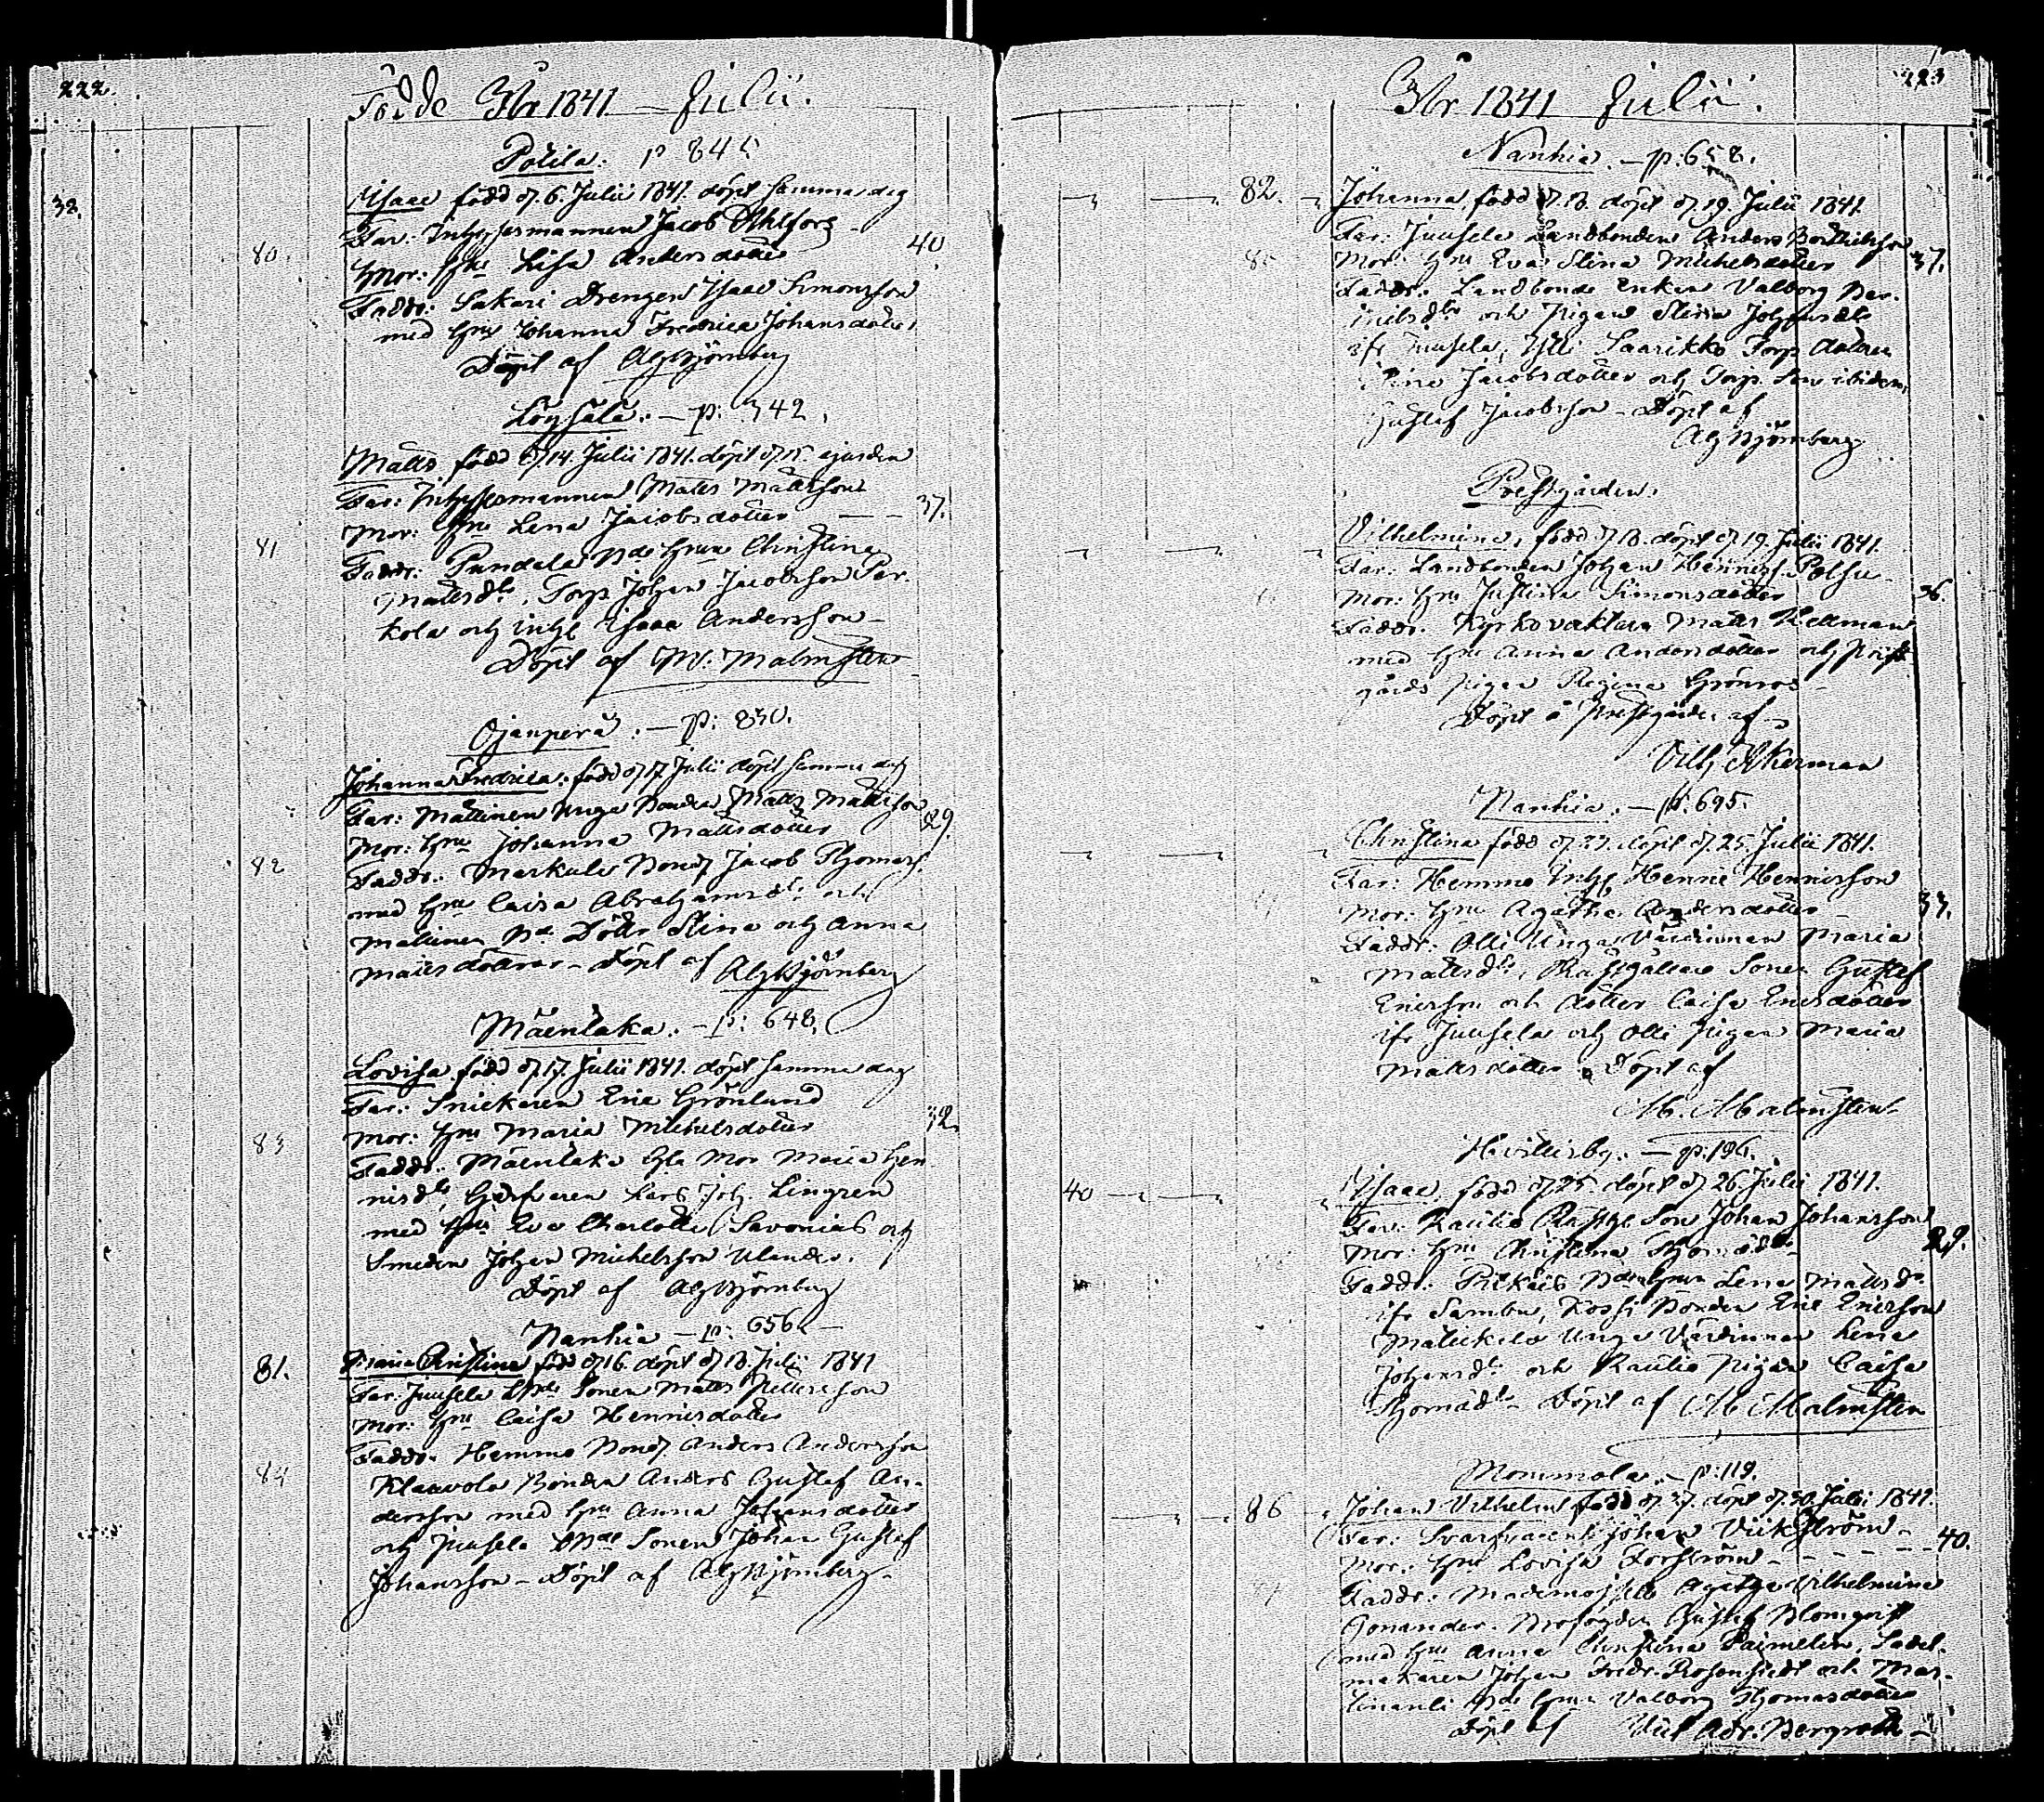 222.
Födde År 1841 – Julii.
Potila. p 840
38.
Isaac född d. 6. Julii 1841. döpt samma dag
Far: Inhysesmannen Jacob Ahlfors
80.
40
Mor: Hru Lisa Andersdotter
Faddr: Sakari Drengen Isaac Simonsson
med Hru Johanna Fredrica Johansdotter
Döpt af AGBjörnberg
– p: 342.
Matts född d. 14. Julii 1841. döpt d. 15 ejusdem
Far: Inhysesmannen Matts Mattsson
37.
Mor: Hru Lena Jacobsdotter
81
Faddr: Pundala Bde Hrun Christina
Mattsdr, Torp. Johan Jacobsson Par-
kola och Inhs Isaac Andersson –
Döpt af M. Malmsten
Ojanperä. – p: 830.
Johanna Fredrica. född d. 17 Julii döpt samma dag
Far: Mattinen unga Bonden Matts Mattsson
29.
Mor: Hru Johanna Mattsdotter
82
Faddr: Markula Bond. Jacob Thomass.
med Hru Caisa Abrahamsdr och
Mattinen Bd Döttr Stina och Anna
Mattsdöttrar – Döpt af AGBjörnberg
Mäentaka. – p: 648.
Lovisa född d. 17. Julii 1841. döpt samma dag
Far: Snickaren Eric Grönlund
32.
Mor: Hru Maria Michelsdotter
83
Faddr: Mäentaka Gla Mor Maria Hen
nisdr, Garfvaren Lars Joh. Lingren
med Hru Eva Charlotta Savonius och
Smeden Johan Michelsson Ulander.
Döpt af AGBjörnberg
Nanhia – p: 656.
81.
Maria Christina född d. 16. döpt d. 18. Julii 1841
Far: Juusela Lbde Sonen Matts Pettersson
Mor: Hru Caisa Hennisdotter
Faddr. Hemmo Bond. Anders Andersson
84
Klaavola Bonden Anders Gustaf An-
dersson med Hru Anna Johansdotter
och Juusela Lbde Sonen Johan Gustaf
Johansson – Döpt af AGBjörnberg –
223
År 1841 Julii.
Nanhia. – p: 658.
82.
Johanna född d. 18. döpt d. 19. Julii 1841.
Far: Juusela Landbonden Anders Berthilsson
37.
Mor: Hru Eva Stina Michelsdotter
Faddr. Landbonde Enkan Valborg
och Pigan Stina Johansdr
ifr Juusela, Olli Saarikko Torp. dottren
Stina Jacobsdotter och Torp. Son ibidem
Gustaf Jacobsson – Döpt af
AGBjörnberg
Prestgården.
Vilhelmina, född d. 18. döpt d. 19. Julii 1841.
Far: Landbonden Johan Henriss. Polsu
36.
Mor: Hru Justina Simonsdotter
Faddr. Kyrkovaktaren Matts Hellman
med Hru Anna Andersdotter och Prest-
gårds Pigan Regina Grönroos –
Döpt i Prestgården af
Vilh Åkerman
Nanhia. – p: 695.
Christina född d. 23. döpt d. 25. Julii 1841.
Far: Hemmo Inhs Henric Henricsson
33.
Mor: Hru Agatha Andersdotter –
Faddr. Olli Unga Värdinnan Maria
Mattsdr, Sonen Gustaf
Ericsson och dotter Caisa Ericsdotter
ifr Juusela och Olli Pigan Maria
Mattsdotter. Döpt af
M. Malmsten
Huittisby. – p: 196.
40
Isaac, född d. 25. döpt d. 26. Julii 1841.
Far: Rautio Son Johan Johansson
29.
Mor: Hru Christina Thomasdr
Faddr. Bde Hrun Lena Mattsdr
ifr Sambu, Kossi Bonden Eric Ericsson
Mattikala Unga Värdinnan Lena
Johansdr och Rautio Pigan Caisa
Thomasdr – Döpt af M. Malmsten
Mommola. – p: 119.
86
Johan Vilhelm född d. 27. döpt d. 30. Julii 1841.
Far: Johan Vikström –
40.
Mor: Hru Lovisa Forström –
Faddr. Mademoiselle Agatha Vilhelmina
Gonander. Brofogden Gustaf Blomqvist
med Hru Anna Christina Saimelin, Sadel-
makaren Johan Fredr. Rosenstedt och Mar-
Bde Hrun Valborg Thomasdotter
Döpt af Adr. Bergroth –